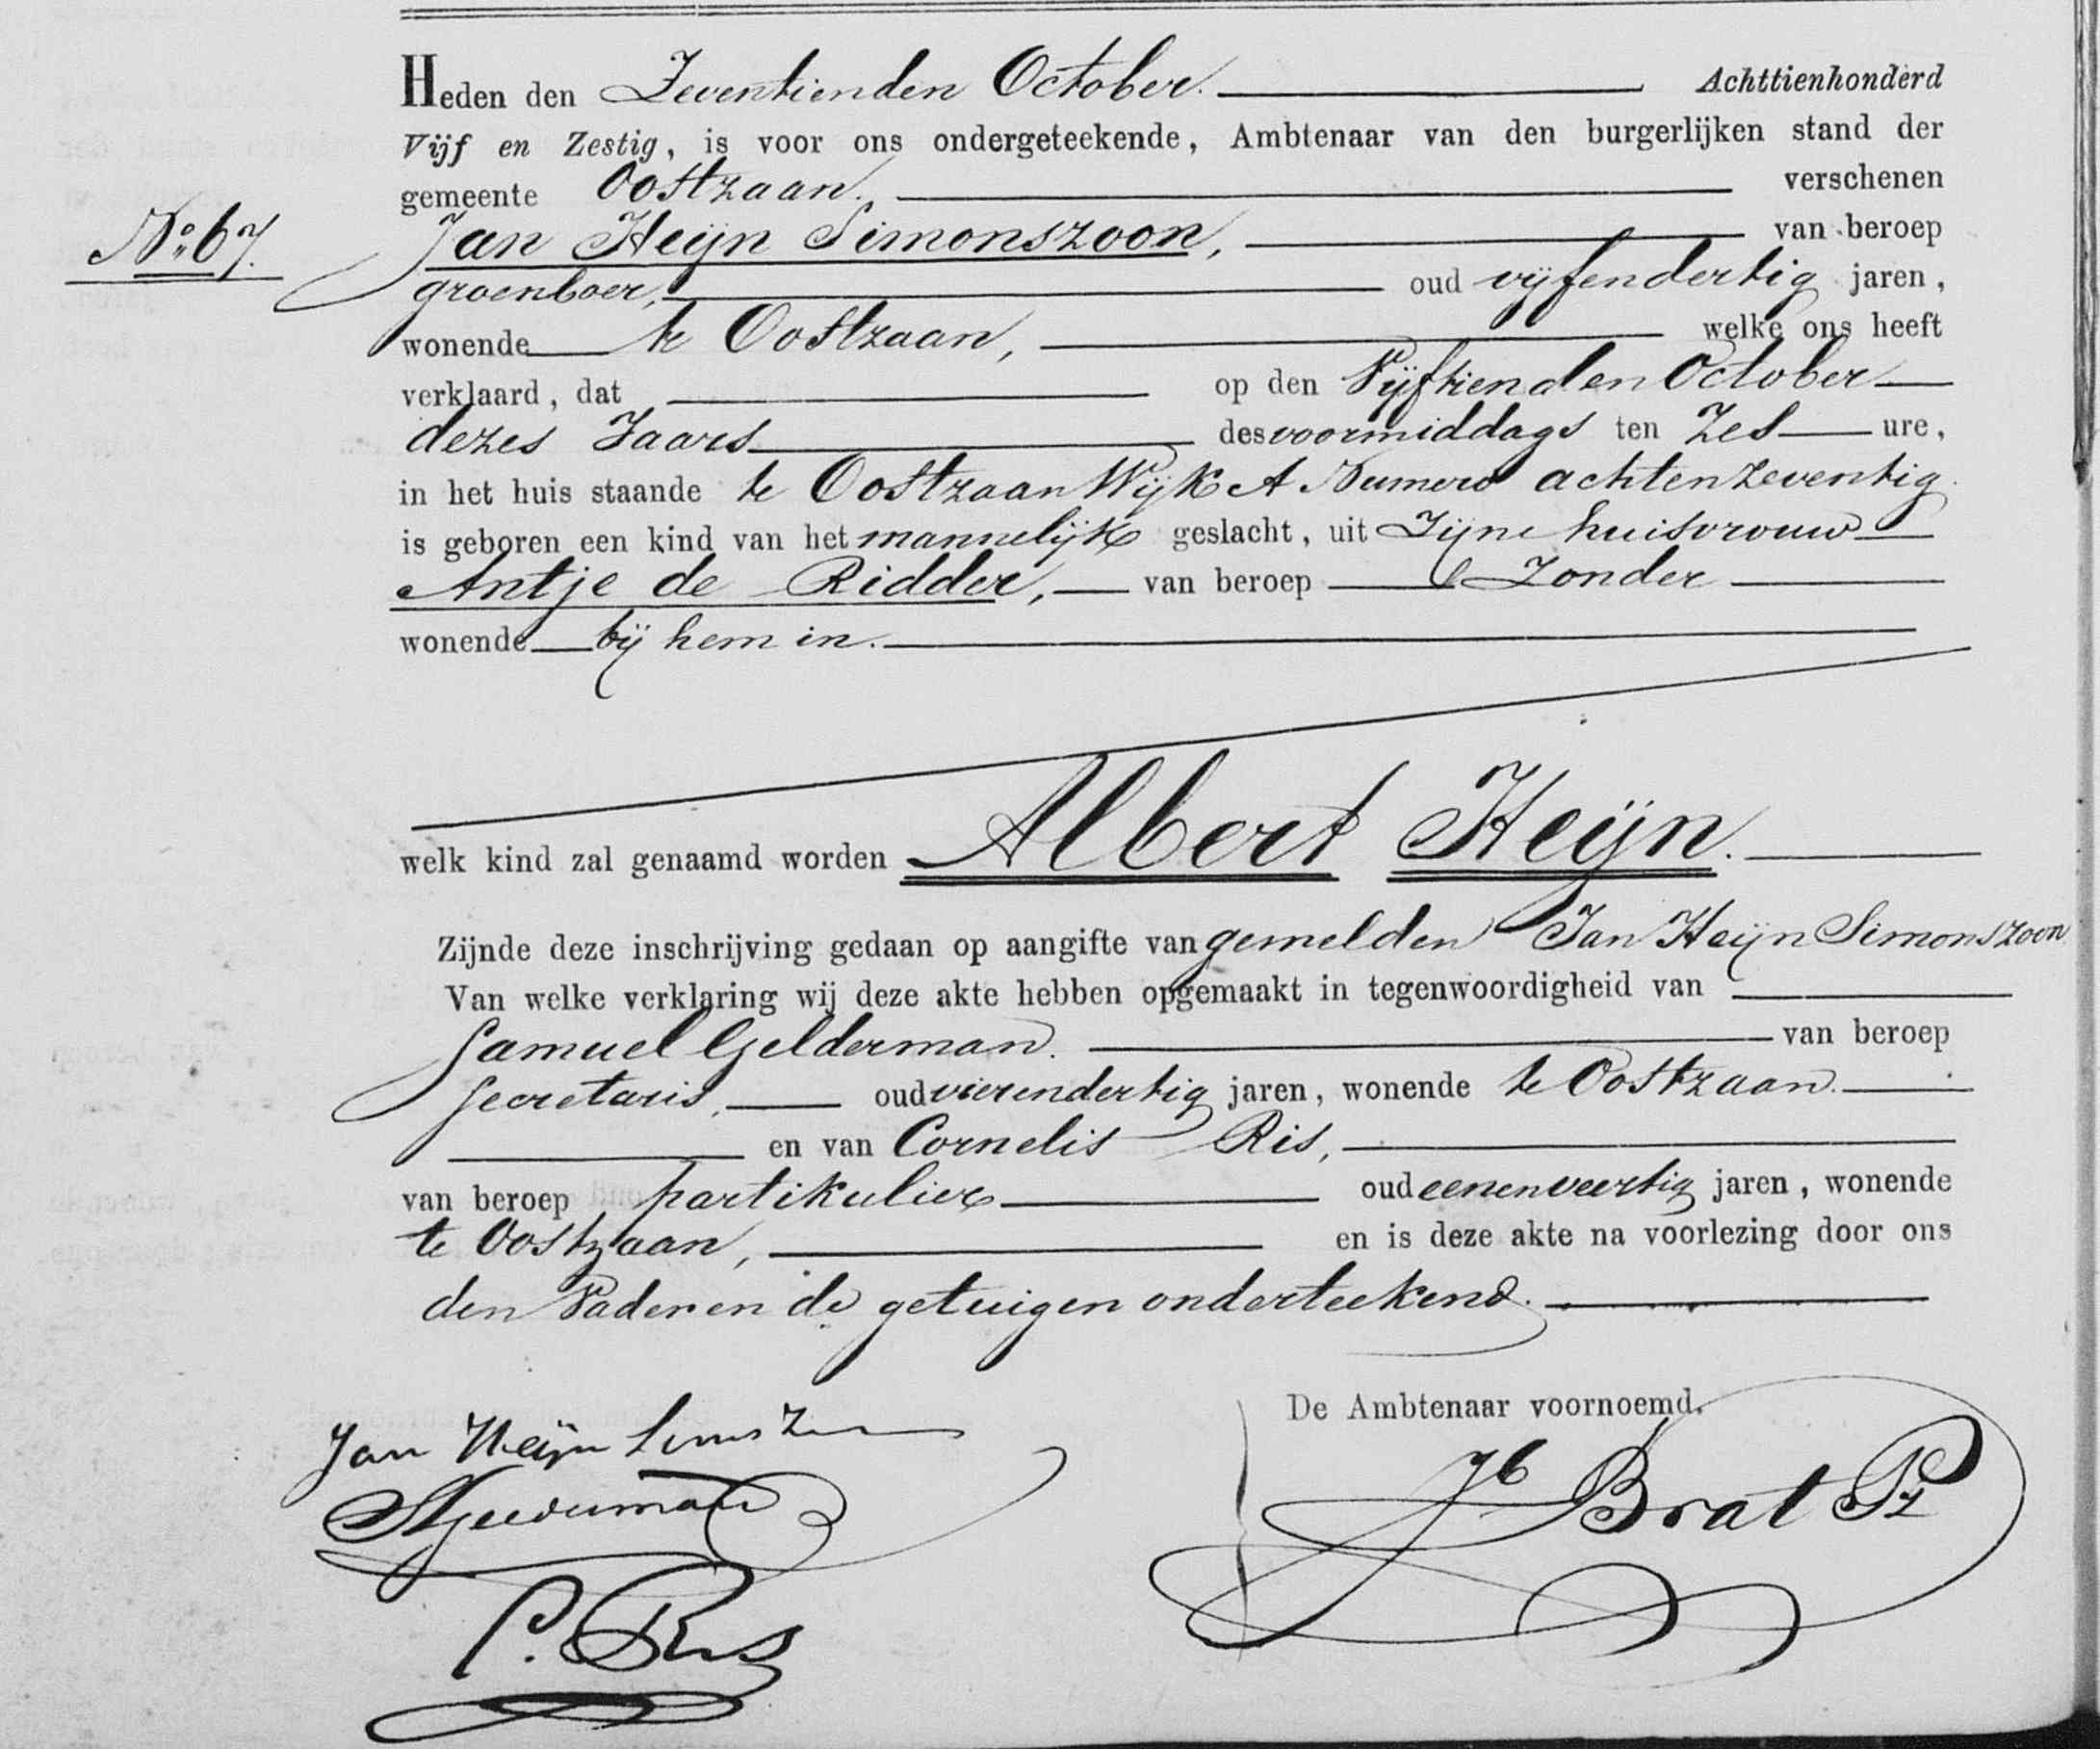 Heden den Zeventienden October. Achttienhonderd
Vijf en Zestig, is voor ons ondergeteekende, Ambtenaar van den burgerlijken stand der
gemeente Oostzaan, verschenen
No. 67.
Jan Heijn Simonszoon, van beroep
groenboer, oud vijfendertig jaren,
wonende te Oostzaan, welke ons heeft
verklaard, dat op den Vijftienden October
dezes Jaars des voormiddags ten Zes ure,
in het huis staande te Oostzaan Wijk A Numero achtenzeventig
is geboren een kind van het mannelijk geslacht, uit Zijne huisvrouw
Antje de Ridder, van beroep Zonder
wonende bij hem in.
welk kind zal genaamd worden Albert Heijn.
Zijnde deze inschrijving gedaan op aangifte van gemelden Jan Heijn Simonszoon
Van welke verklaring wij deze akte hebben opgemaakt in tegenwoordigheid van
Samuel Gelderman. van beroep
Secretaris, oud vierendertig jaren, wonende te Oostzaan.
en van Cornelis Ris,
van beroep partikulier oud eenenveertig jaren, wonende
te Oostzaan, en is deze akte na voorlezing door ons
den Vader en de getuigen onderteekend.
De Ambtenaar voornoemd.
Jan Heijn Simsz
SGelderman
Jb Brat Pz
C. Ris